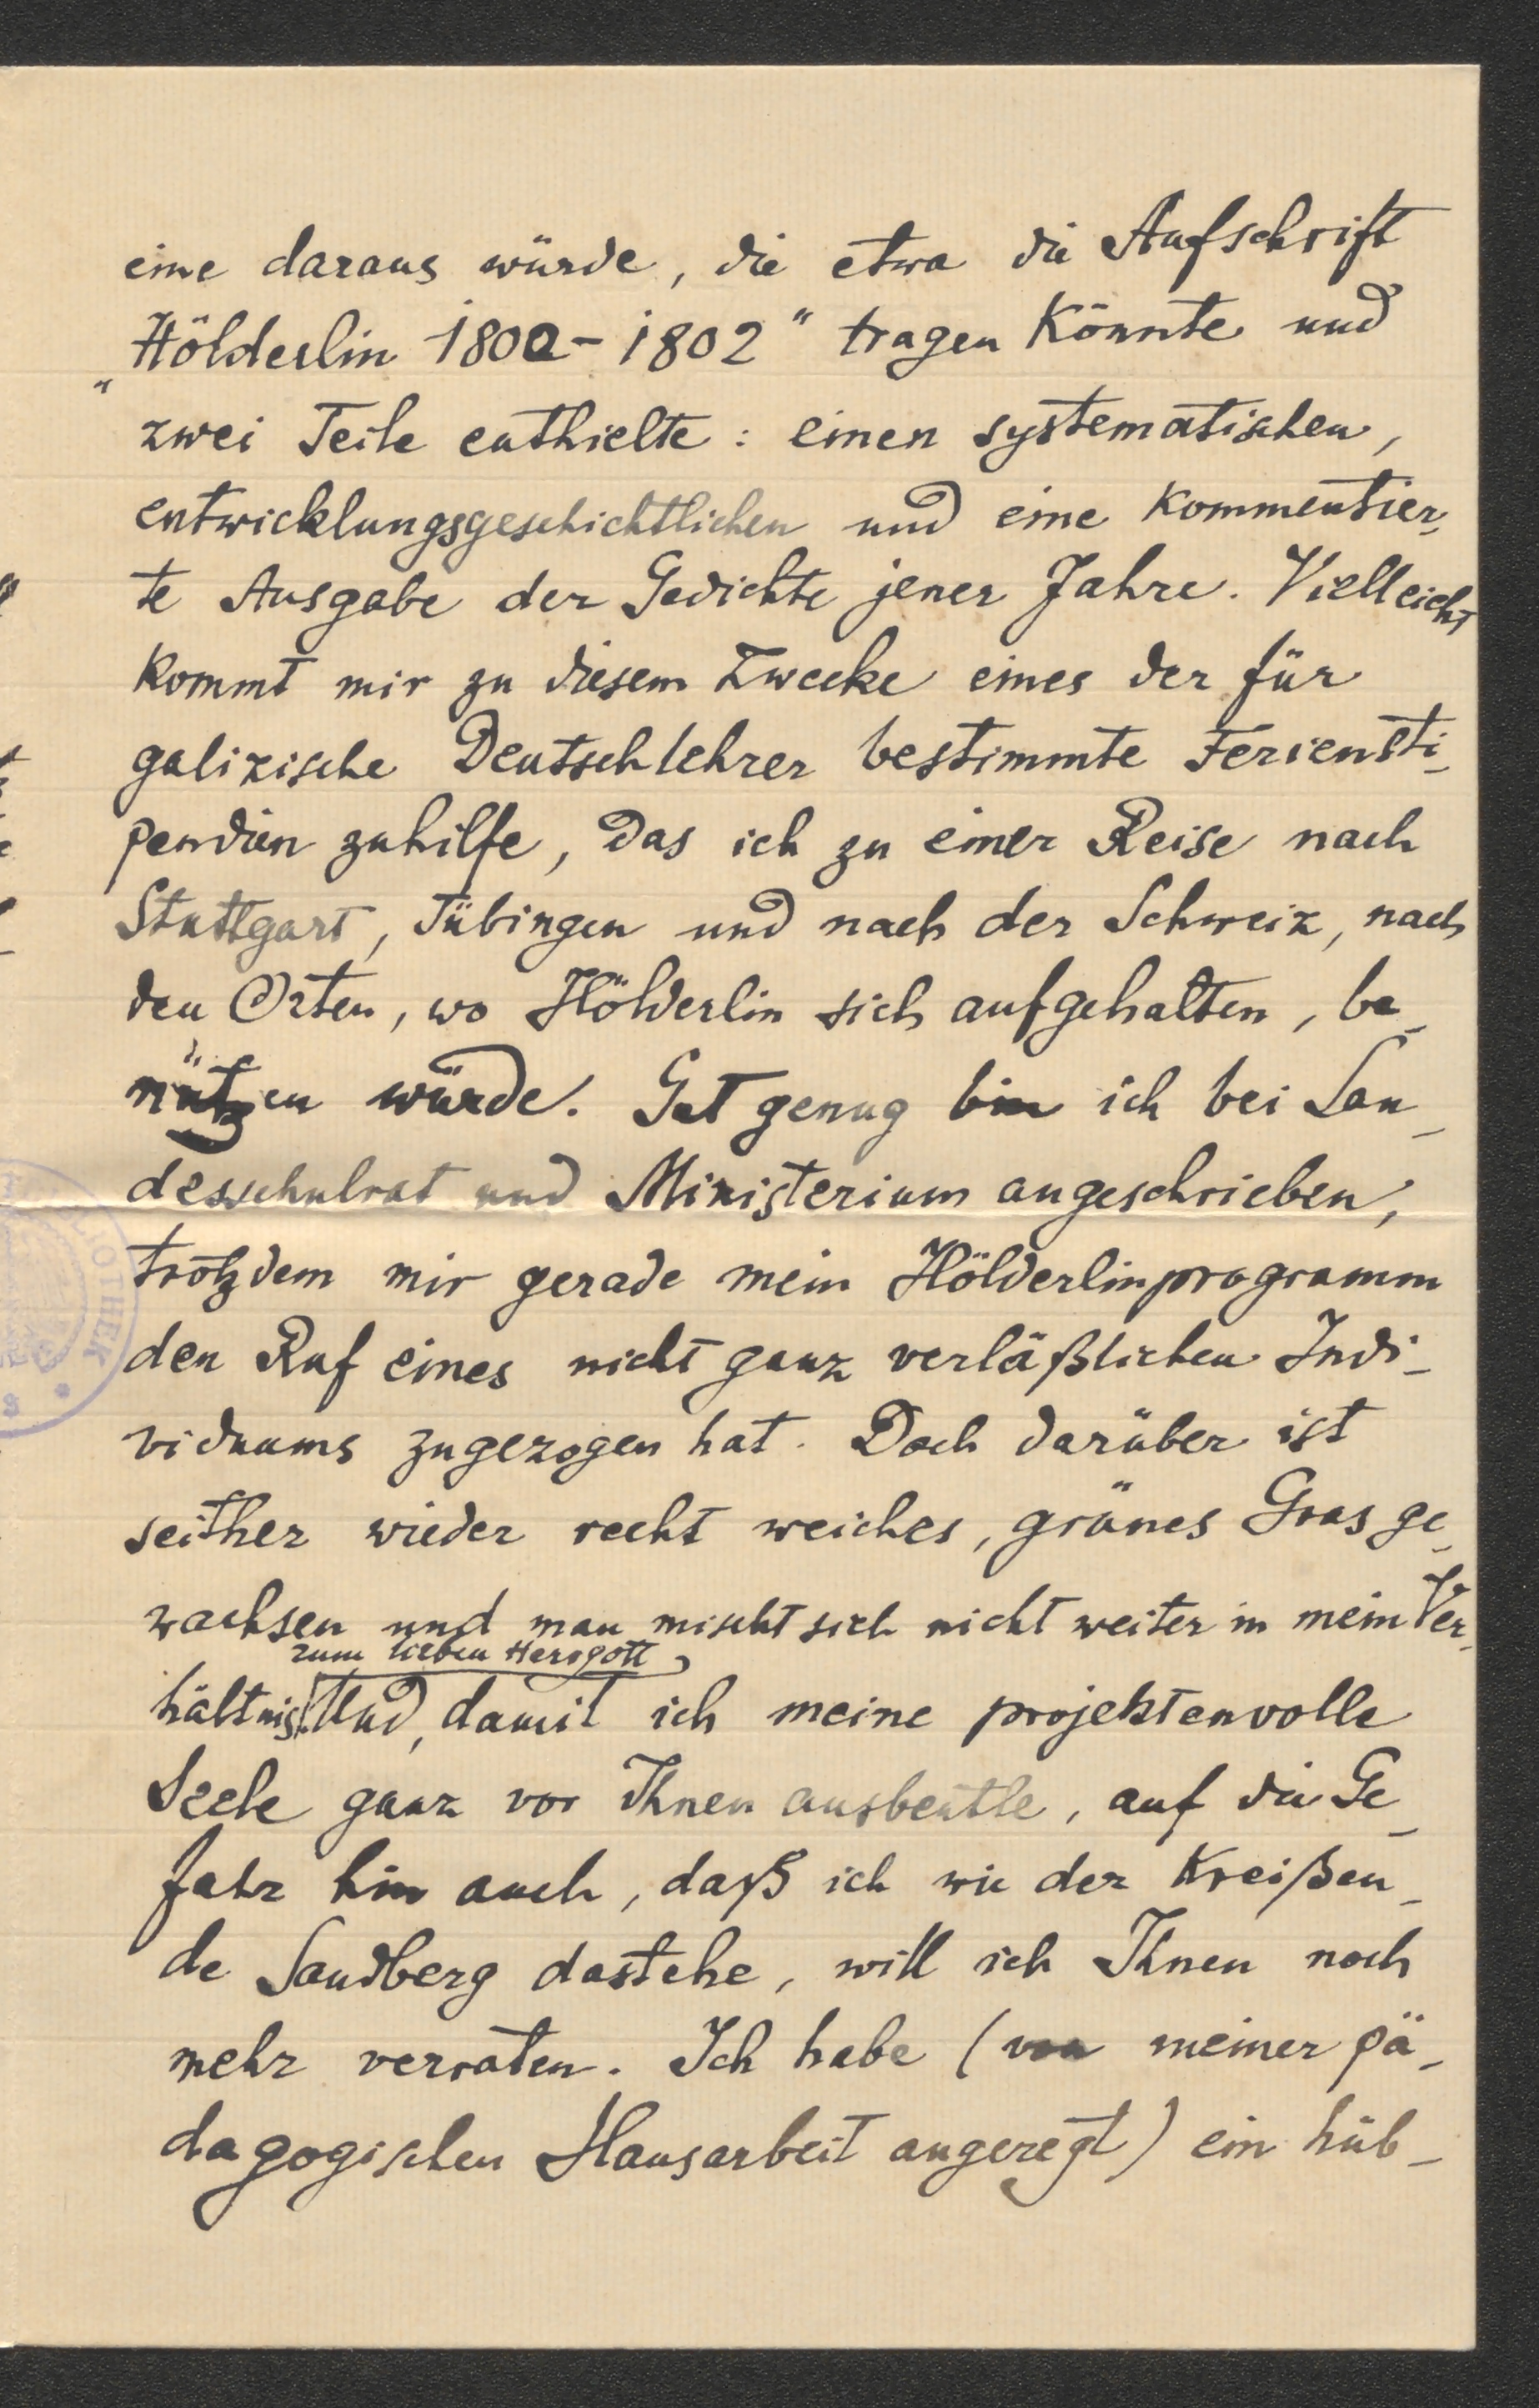 eine daraus würde, die etwa die Aufschrift
„Hölderlin 1800-1802“ tragen könnte und
zwei Teile enthielte: einen systematischen,
entwicklungsgeschichtlichen und eine kommentier-
te Ausgabe der Gedichte jener Jahre. Vielleicht
kommt mir zu diesem Zwecke eines der für
galizische Deutschlehrer bestimmte Feriensti-
pendien zuhilfe, das ich zu einer Reise nach
Stuttgart, Tübingen und nach der Schweiz, nach
den Orten, wo Hölderlin sich aufgehalten, be-
nützen würde. Gut genug bin ich bei Lan-
desschulrat und Ministerium angeschrieben,
trotzdem mir gerade mein Hölderlinprogramm
den Ruf eines nicht ganz verläßlichen Indi-
viduums zugezogen hat. Doch darüber ist
seither wieder recht weiches, grünes Gras ge-
wachsen und man mischt sich nicht weiter in mein Ver-
zum lieben Herrgott
hältnis. Und, damit ich meine projektenvolle
Seele ganz vor Ihnen ausbeutle, auf die Ge-
fahr hin auch, daß ich wie der kreißen-
de Sandberg dastehe, will ich Ihnen noch
mehr verraten. Ich habe (von meiner pä-
dagogischen Hausarbeit angeregt) ein hüb-